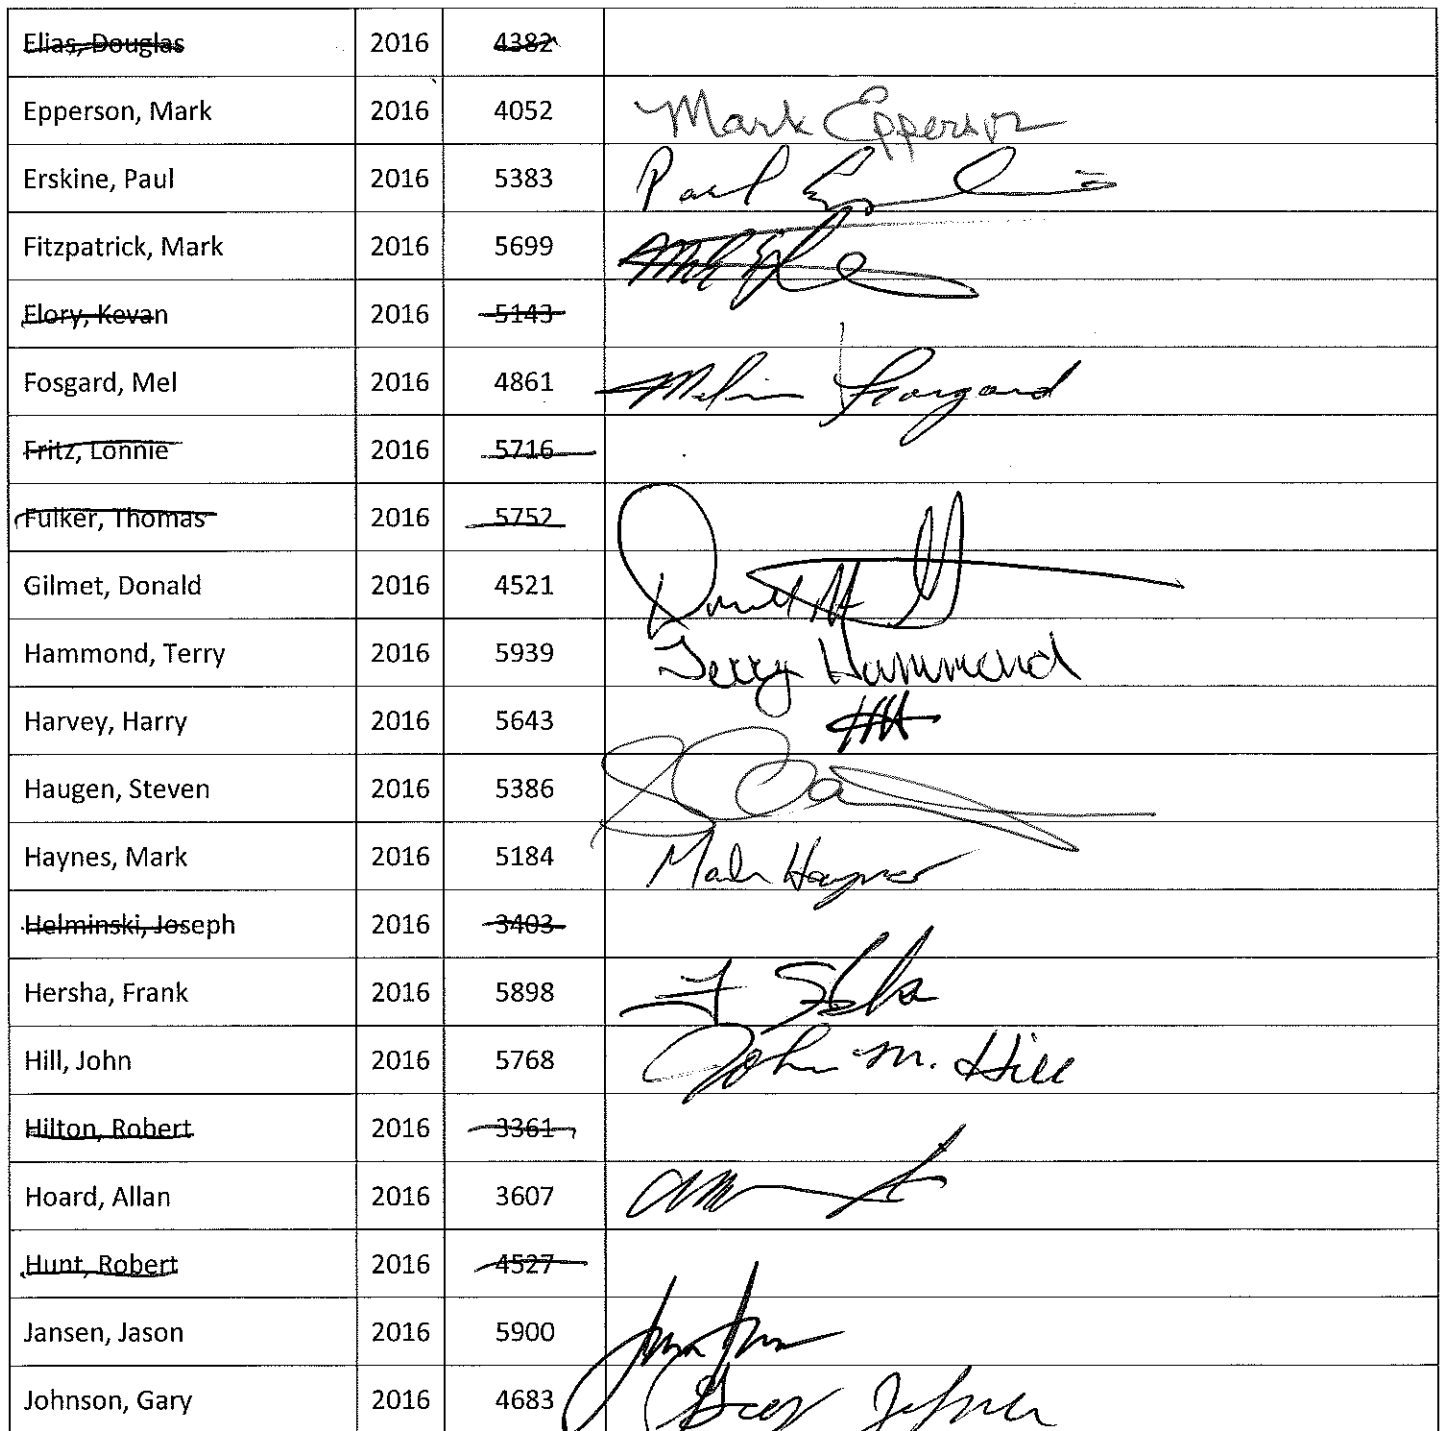 Elias, Douglas 2016 4382
Epperson, Mark 2016 4052 Mark Epperson
Erskine, Paul 2016 5383 Paul
Fitzpatrick, Mark 2016 5699
Flory, Kevan 2016 5143
Fosgard, Mel 2016 4861 Melvin Fosgard
Fritz, Lonnie 2016 5716
Fulker, Thomas 2016 5752
Gilmet, Donald 2016 4521
Hammond, Terry 2016 5939 Terry Hammond
Harvey, Harry 2016 5643 HH
Haugen, Steven 2016 5386
Haynes, Mark 2016 5184 Mark Haynes
Helminski, Joseph 2016 3403
Hersha, Frank 2016 5898
Hill, John 2016 5768 John M. Hill
Hilton, Robert 2016 3361
Hoard, Allan 2016 3607
Hunt, Robert 2016 4527
Jansen, Jason 2016 5900
Johnson, Gary 2016 4683 Gary Johnson